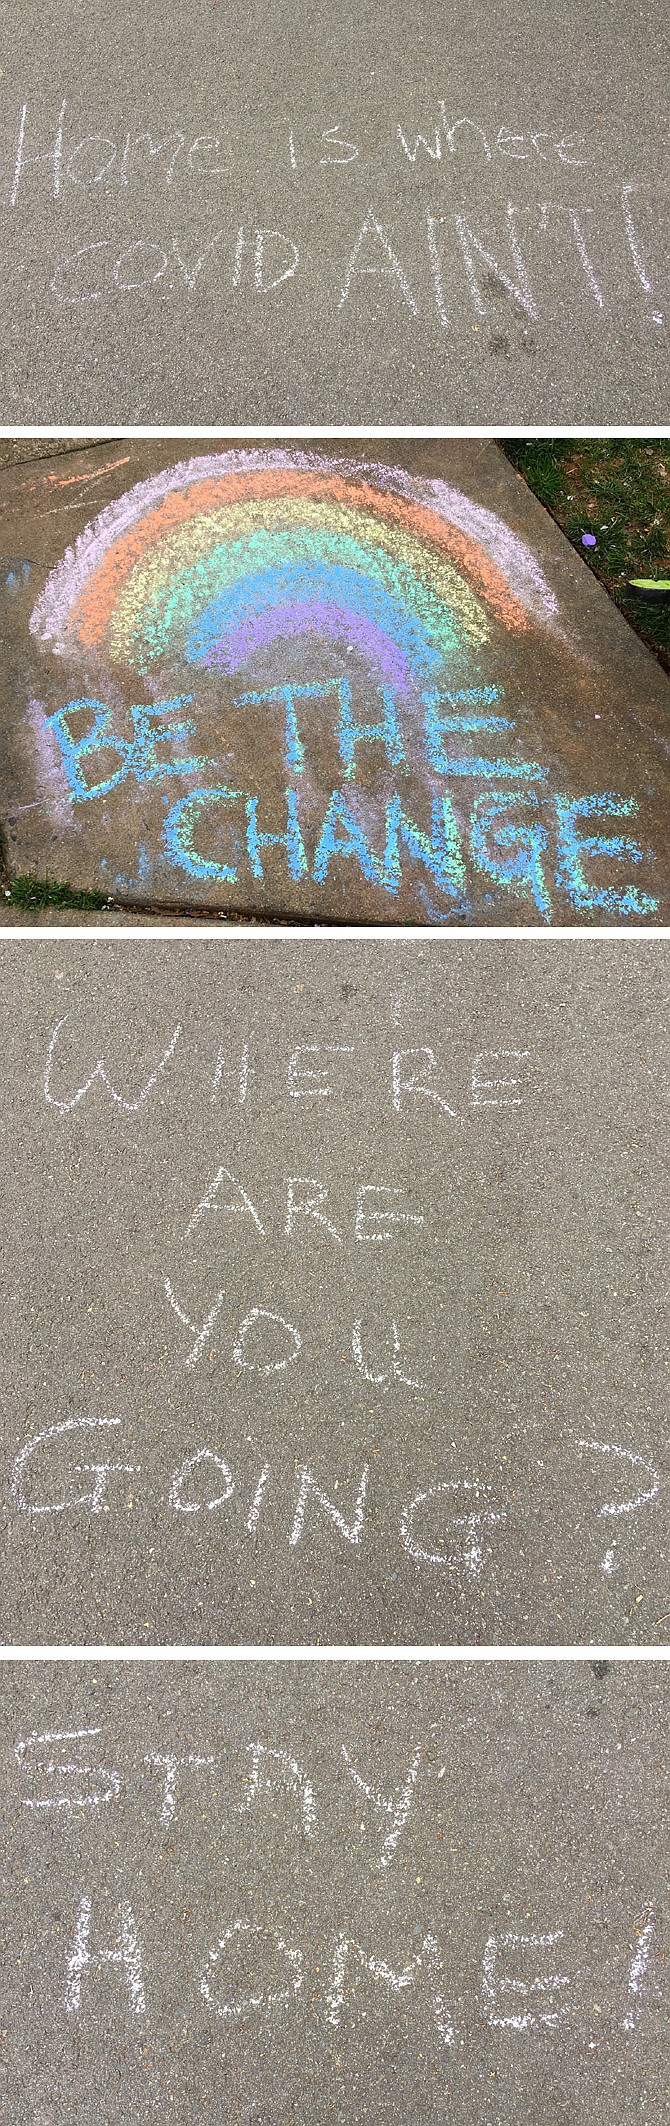 Home is where
COVID AIN'T!
BE THE
CHANGE
WHERE
ARE
YOU
GOING?
STAY
HOME!